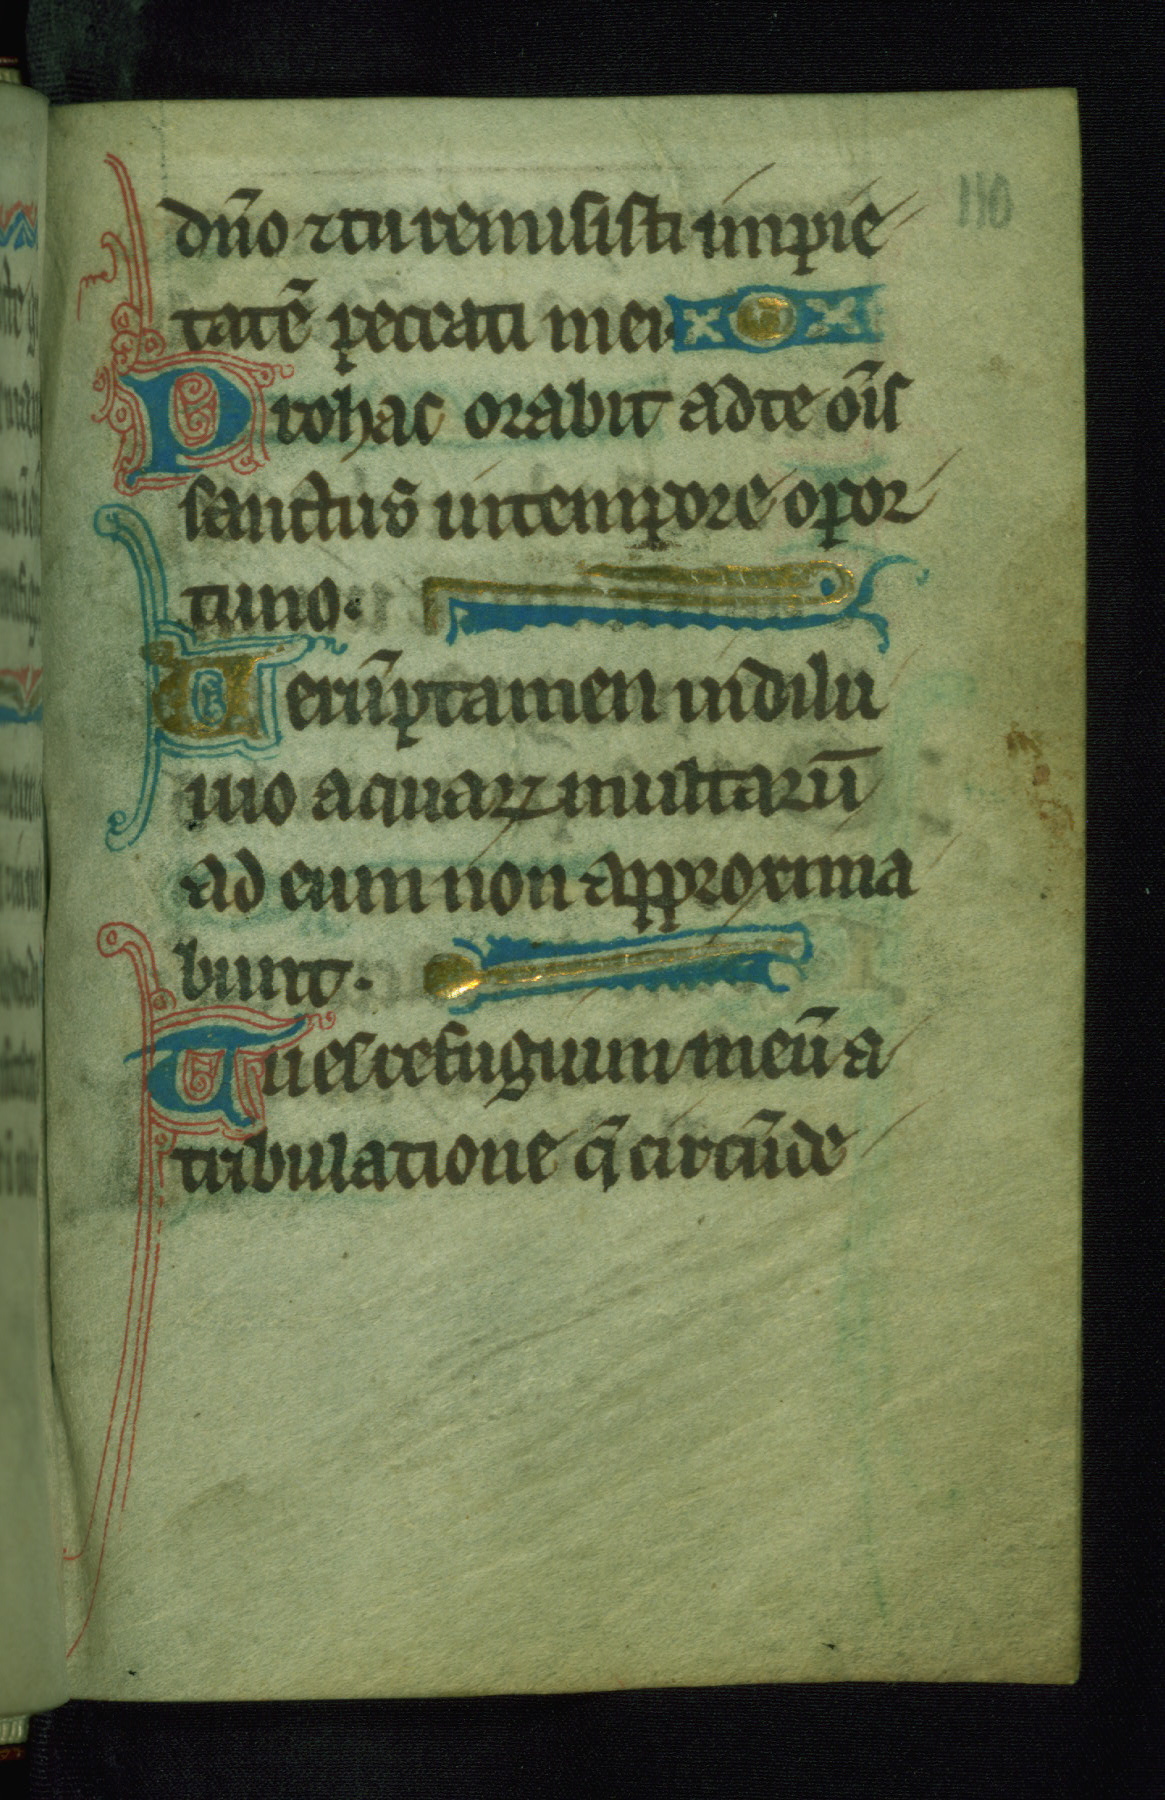 dn̄o ⁊ tu remisisti impie
tatē peccati mei.
Pro hac orabit ad te oīs
sanctus in tempore opor
tuno.
Uerūptamen in dilu
uio aquaꝝ multarū
ad eum non approxima
bunt.
Tu es refugium meū a
tribulatione q̄ circūde